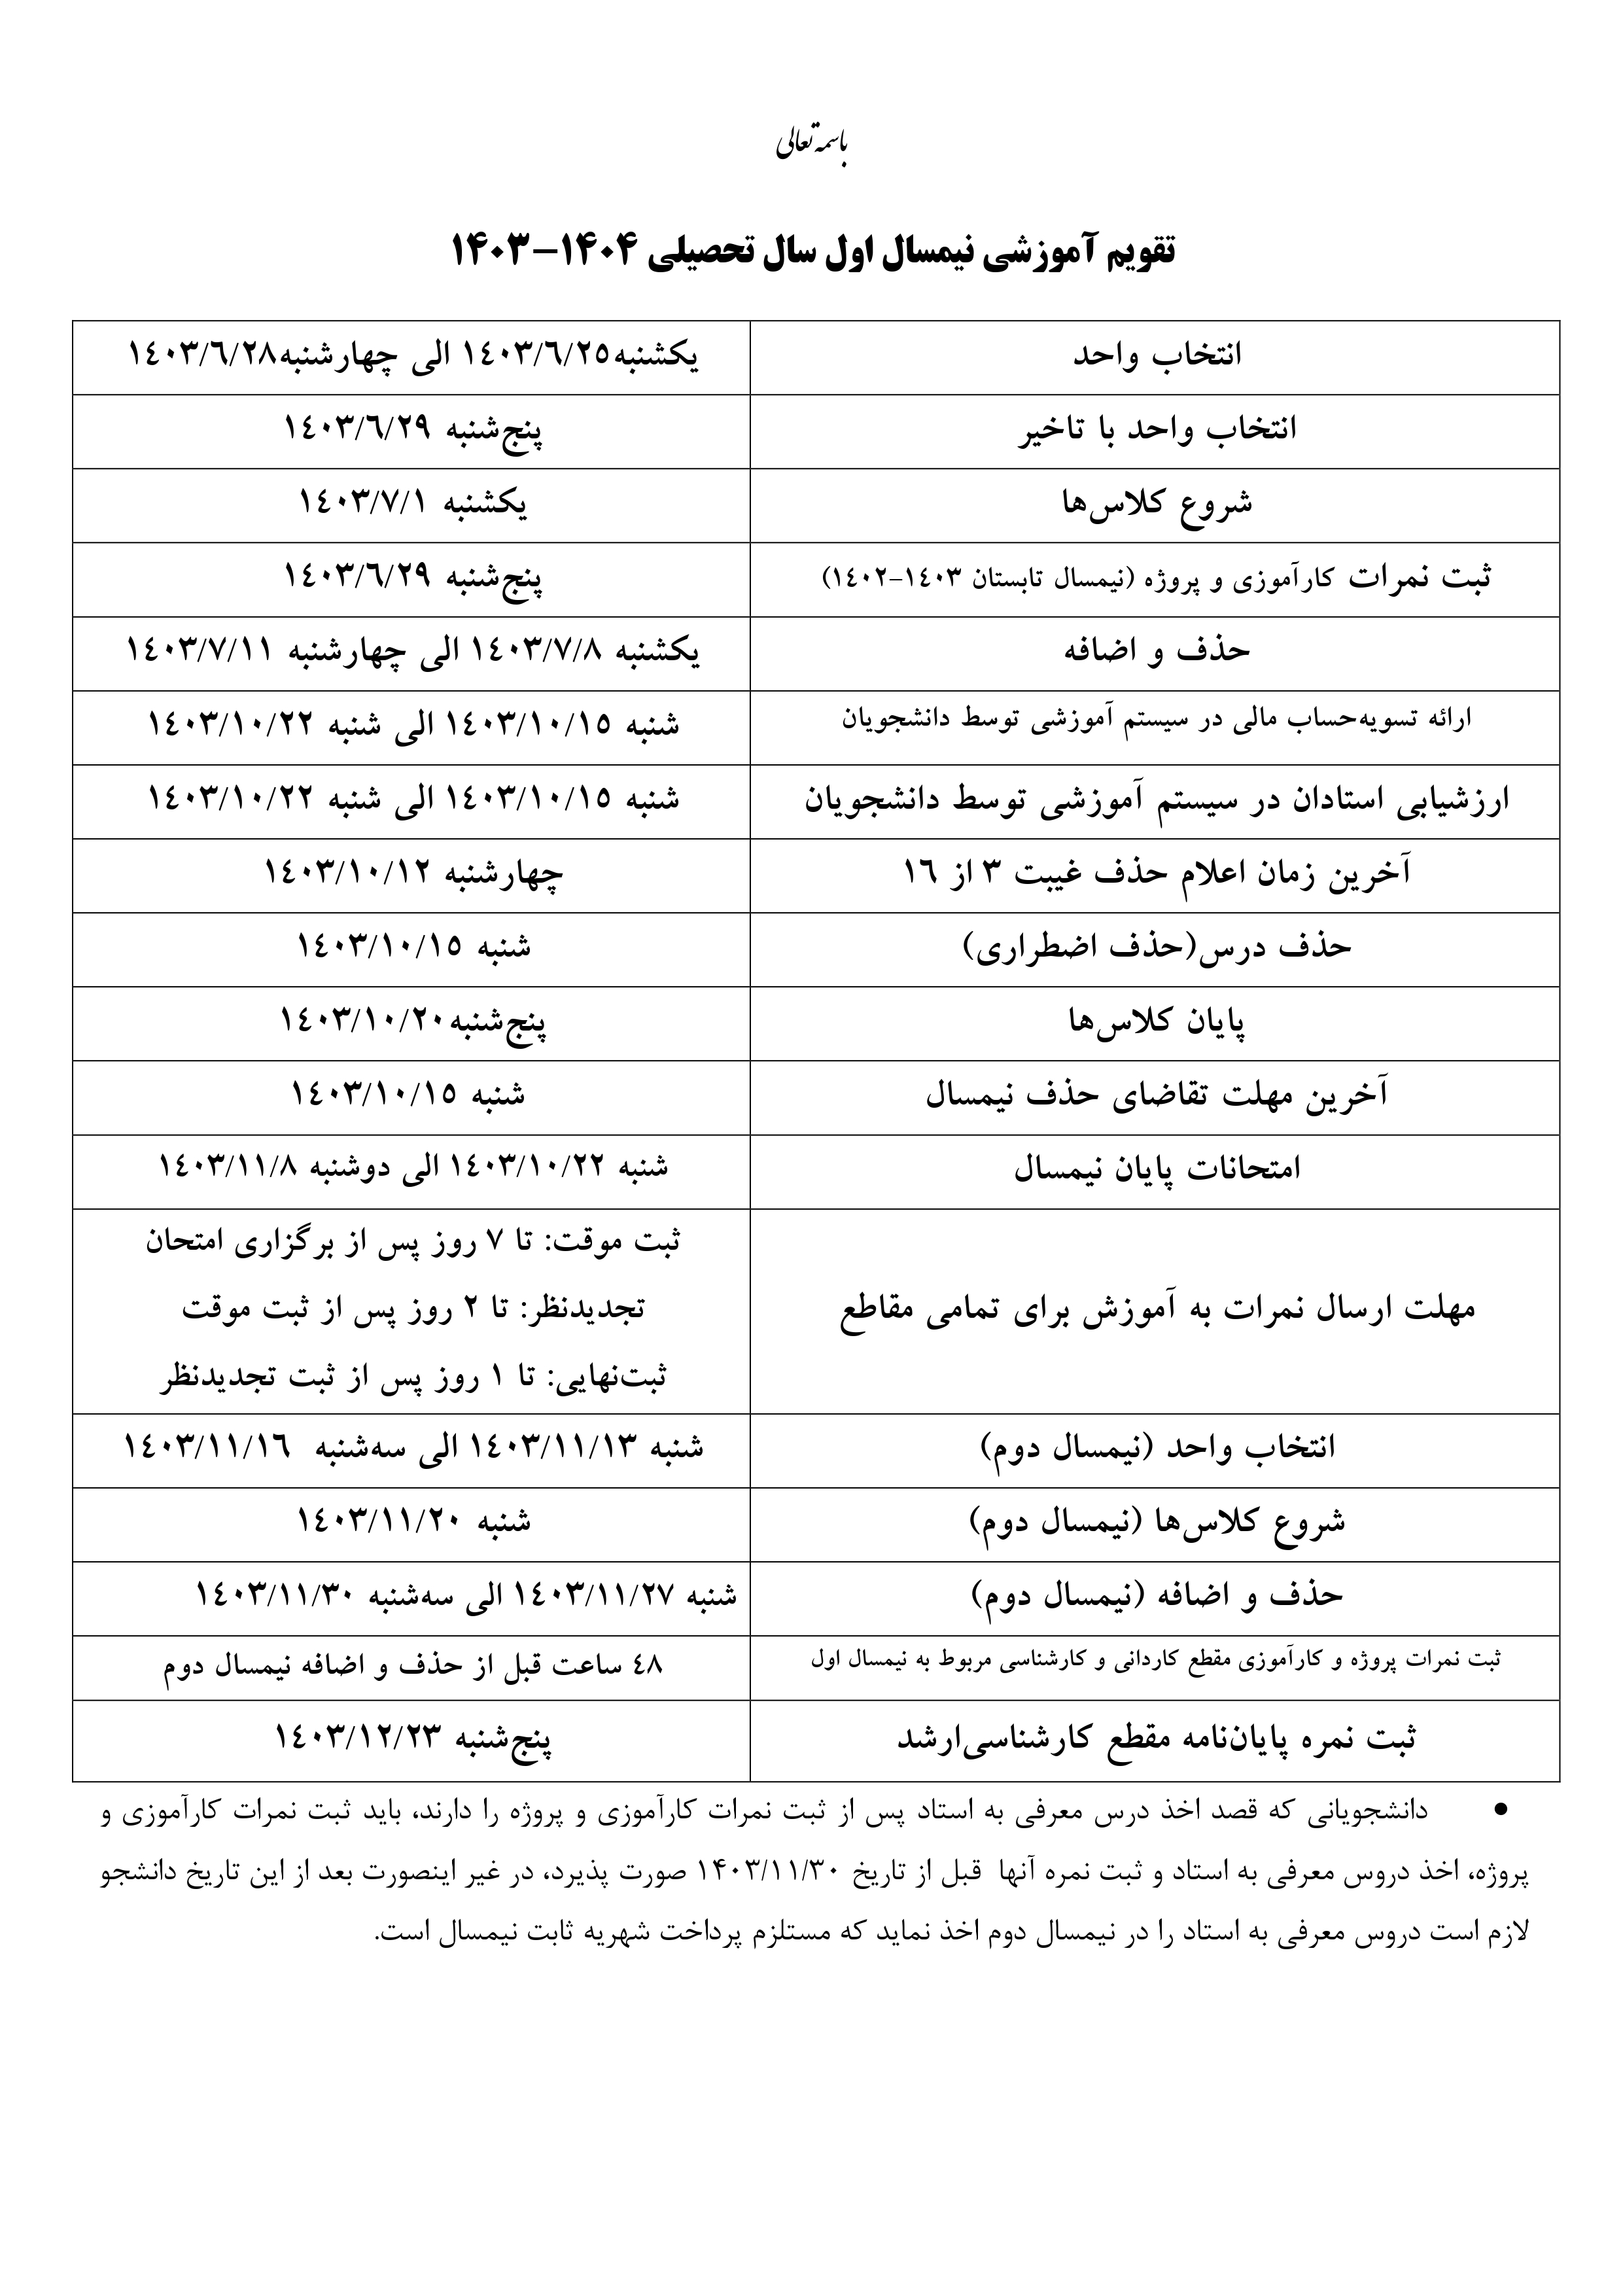 باسمه تعالی
تقویم آموزشی نیمسال اول سال تحصیلی ۱۴۰۴-۱۴۰۳
انتخاب واحد یکشنبه۱۴۰۳/۶/۲۵ الی چهارشنبه۱۴۰۳/۶/۲۸
انتخاب واحد با تاخیر پنج‌شنبه ۱۴۰۳/۶/۲۹
شروع کلاس‌ها یکشنبه ۱۴۰۳/۷/۱
ثبت نمرات کارآموزی و پروژه (نیمسال تابستان ۱۴۰۳-۱۴۰۲) پنج‌شنبه ۱۴۰۳/۶/۲۹
حذف و اضافه یکشنبه ۱۴۰۳/۷/۸ الی چهارشنبه ۱۴۰۳/۷/۱۱
ارائه تسویه‌حساب مالی در سیستم آموزشی توسط دانشجویان شنبه ۱۴۰۳/۱۰/۱۵ الی شنبه ۱۴۰۳/۱۰/۲۲
ارزشیابی استادان در سیستم آموزشی توسط دانشجویان شنبه ۱۴۰۳/۱۰/۱۵ الی شنبه ۱۴۰۳/۱۰/۲۲
آخرین زمان اعلام حذف غیبت ۳ از ۱۶ چهارشنبه ۱۴۰۳/۱۰/۱۲
حذف درس(حذف اضطراری) شنبه ۱۴۰۳/۱۰/۱۵
پایان کلاس‌ها پنج‌شنبه۱۴۰۳/۱۰/۲۰
آخرین مهلت تقاضای حذف نیمسال شنبه ۱۴۰۳/۱۰/۱۵
امتحانات پایان نیمسال شنبه ۱۴۰۳/۱۰/۲۲ الی دوشنبه ۱۴۰۳/۱۱/۸
مهلت ارسال نمرات به آموزش برای تمامی مقاطع
ثبت موقت: تا ۷ روز پس از برگزاری امتحان
تجدیدنظر: تا ۲ روز پس از ثبت موقت
ثبت‌نهایی: تا ۱ روز پس از ثبت تجدیدنظر
انتخاب واحد (نیمسال دوم) شنبه ۱۴۰۳/۱۱/۱۳ الی سه‌شنبه ۱۴۰۳/۱۱/۱۶
شروع کلاس‌ها (نیمسال دوم) شنبه ۱۴۰۳/۱۱/۲۰
حذف و اضافه (نیمسال دوم) شنبه ۱۴۰۳/۱۱/۲۷ الی سه‌شنبه ۱۴۰۳/۱۱/۳۰
ثبت نمرات پروژه و کارآموزی مقطع کاردانی و کارشناسی مربوط به نیمسال اول ۴۸ ساعت قبل از حذف و اضافه نیمسال دوم
ثبت نمره پایان‌نامه مقطع کارشناسی‌ارشد پنج‌شنبه ۱۴۰۳/۱۲/۲۳
• دانشجویانی که قصد اخذ درس معرفی به استاد پس از ثبت نمرات کارآموزی و پروژه را دارند، باید ثبت نمرات کارآموزی و
پروژه، اخذ دروس معرفی به استاد و ثبت نمره آنها قبل از تاریخ ۱۴۰۳/۱۱/۳۰ صورت پذیرد، در غیر اینصورت بعد از این تاریخ دانشجو
لازم است دروس معرفی به استاد را در نیمسال دوم اخذ نماید که مستلزم پرداخت شهریه ثابت نیمسال است.